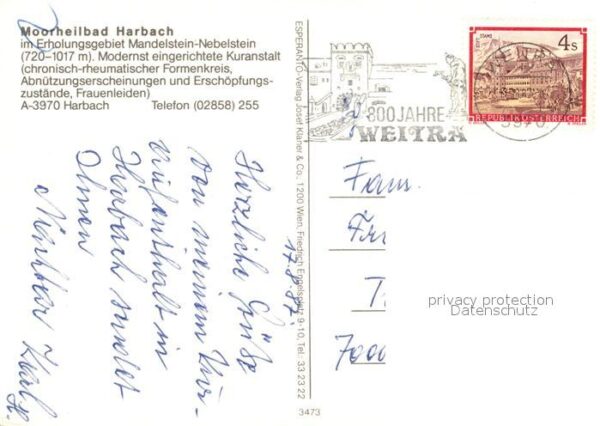 Moorheilbad Harbach
im Erholungsgebiet Mandelstein-Nebelstein
(720–1017 m). Modernst eingerichtete Kuranstalt
(chronisch-rheumatischer Formenkreis,
Abnützungserscheinungen und Erschöpfungs-
zustände, Frauenleiden)
A-3970 Harbach Telefon (02858) 255
17.8.87.
Herzliche Grüße
von meinem Kur-
aufenthalt in
Harbach sendet
Ihnen
Karl
ESPERANTO-Verlag Josef Klaner & Co., 1200 Wien, Friedrich Engelsplatz 9-10, Tel.: 33 23 22
3473
800 JAHRE
WEITRA
STAMS
4 S
REPUBLIK ÖSTERREICH
3970
Fam.
Fr
T
7000
privacy protection
Datenschutz